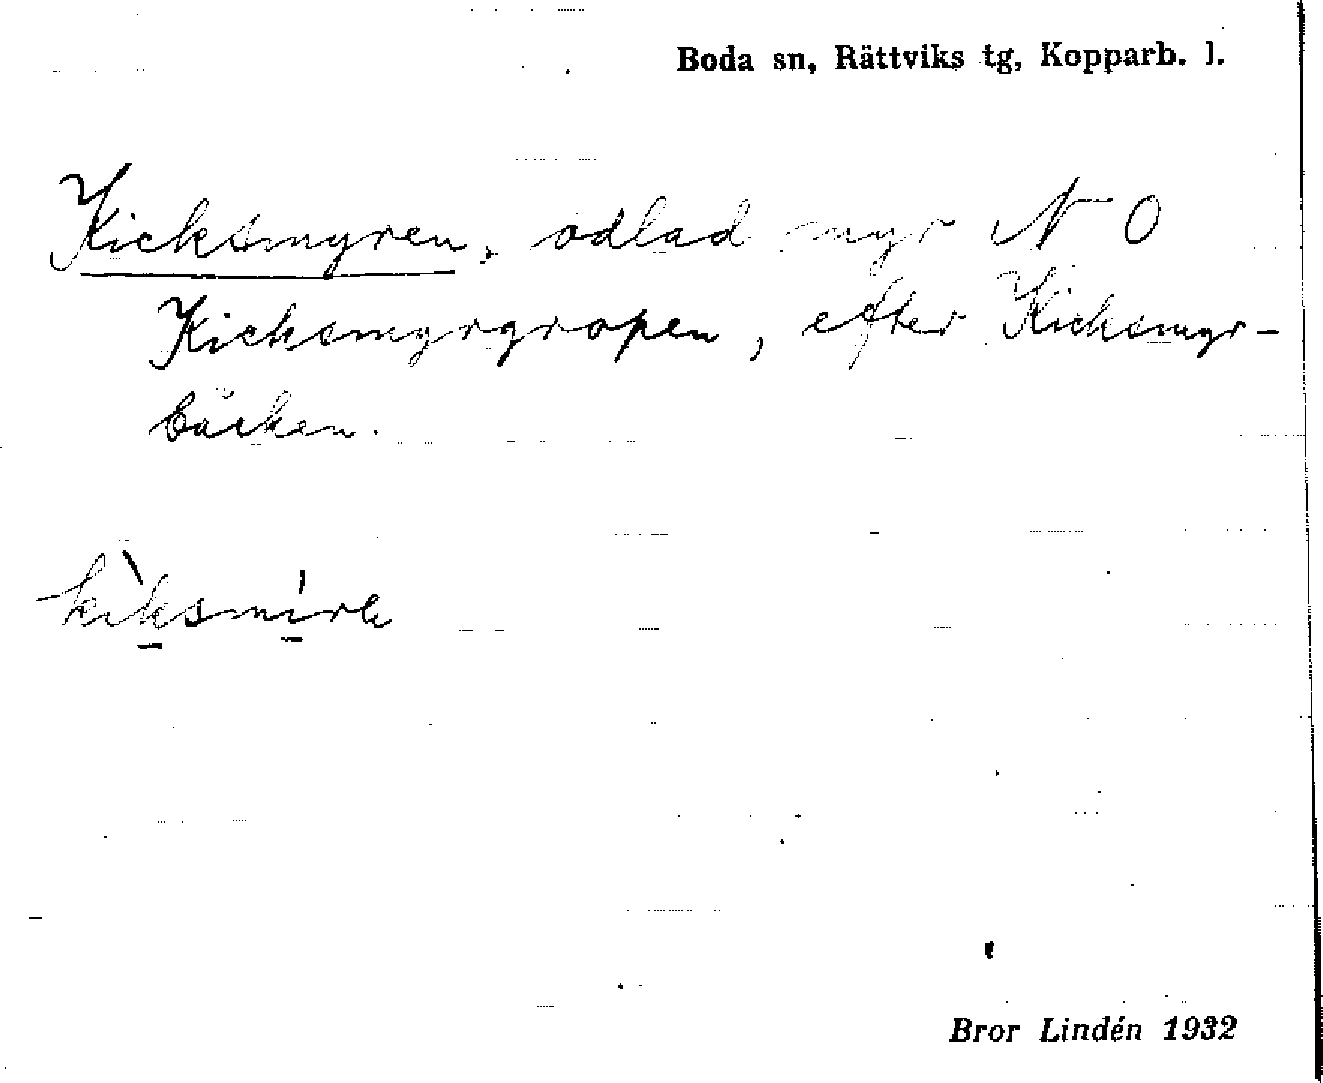 Boda sn, Rättviks tg, Kopparb. l.
Kicksmyren, odlad myr N O
Kicksmyrgropen, efter Kicksmyr-
bäcken.
Bror Lindén 1932